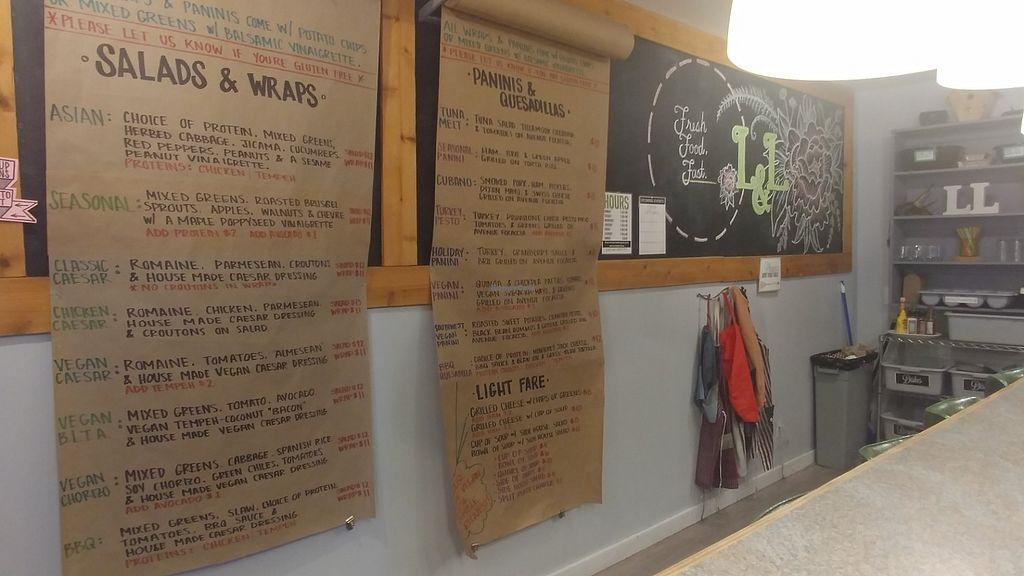 & PANINIS COME W/ POTATO CHIPS
OR MIXED GREENS W/ BALSAMIC VINAIGRETTE.
*PLEASE LET US KNOW IF YOU'RE GLUTEN FREE*
SALADS & WRAPS
ASIAN: CHOICE OF PROTEIN, MIXED GREENS,
HERBED CABBAGE, JICAMA, CUCUMBERS,
RED PEPPERS, PEANUTS & A SESAME
PEANUT VINAIGRETTE
PROTEINS: CHICKEN, TEMPEH
SEASONAL: MIXED GREENS, ROASTED BRUSSEL
SPROUTS, APPLES, WALNUTS & CHEVRE
W/ A MAPLE POPPYSEED VINAIGRETTE
ADD PROTEIN $2 ADD AVOCADO $1
CLASSIC CAESAR: ROMAINE, PARMESEAN, CROUTONS
& HOUSE MADE CAESAR DRESSING
*NO CROUTONS IN WRAP*
CHICKEN CAESAR: ROMAINE, CHICKEN, PARMESEAN,
HOUSE MADE CAESAR DRESSING
& CROUTONS ON SALAD
VEGAN CAESAR: ROMAINE, TOMATOES, ALMESEAN
& HOUSE MADE VEGAN CAESAR DRESSING
ADD TEMPEH $2
VEGAN B.L.T.A.: MIXED GREENS, TOMATO, AVOCADO,
VEGAN TEMPEH-COCONUT "BACON"
& HOUSE MADE VEGAN CAESAR DRESSING
VEGAN CHORIZO: MIXED GREENS, CABBAGE, SPANISH RICE,
SOY CHORIZO, GREEN CHILES, TOMATOES
& HOUSE MADE VEGAN CAESAR DRESSING
ADD AVOCADO $1
BBQ: MIXED GREENS, SLAW, CHOICE OF PROTEIN,
TOMATOES, BBQ SAUCE &
HOUSE MADE CAESAR DRESSING
PROTEINS: CHICKEN, TEMPEH
ALL WRAPS & PANINIS COME W/ POTATO CHIPS
OR MIXED GREENS W/ BALSAMIC VINAIGRETTE
PANINIS &
QUESADILLAS
TUNA MELT: TUNA SALAD, TILLAMOOK CHEDDAR
& TOMATOES ON AVENUE FOCACCIA
SEASONAL PANINI: HAM, BRIE & GREEN APPLE
GRILLED ON
CUBANO: SMOKED PORK, HAM, PICKLES,
DIJON MAYO & SWISS CHEESE
GRILLED ON AVENUE FOCACCIA
TURKEY PESTO: TURKEY, PROVOLONE CHEESE, PESTO MAYO
TOMATOES & GREENS GRILLED ON
AVENUE FOCACCIA
HOLIDAY PANINI: TURKEY, CRANBERRY SAUCE &
BRIE GRILLED ON AVENUE FOCACCIA
VEGAN PANINI: QUINOA & CHICKPEA PATTIES,
GRILLED ON AVENUE FOCACCIA
VEGAN PANINI: ROASTED SWEET POTATOES,
BLACK BEAN HUMMUS &
BBQ QUESADILLA: CHOICE OF PROTEIN,
LIGHT FARE
GRILLED CHEESE W/ CHIPS OR GREENS
GRILLED CHEESE W/ CUP OF SOUP
CUP OF SOUP W/ SIDE HOUSE SALAD
BOWL OF SOUP W/ SIDE HOUSE SALAD
CUP OF SOUP
BOWL OF SOUP
HOURS
Fresh
Food,
Fast.
L&L
LL